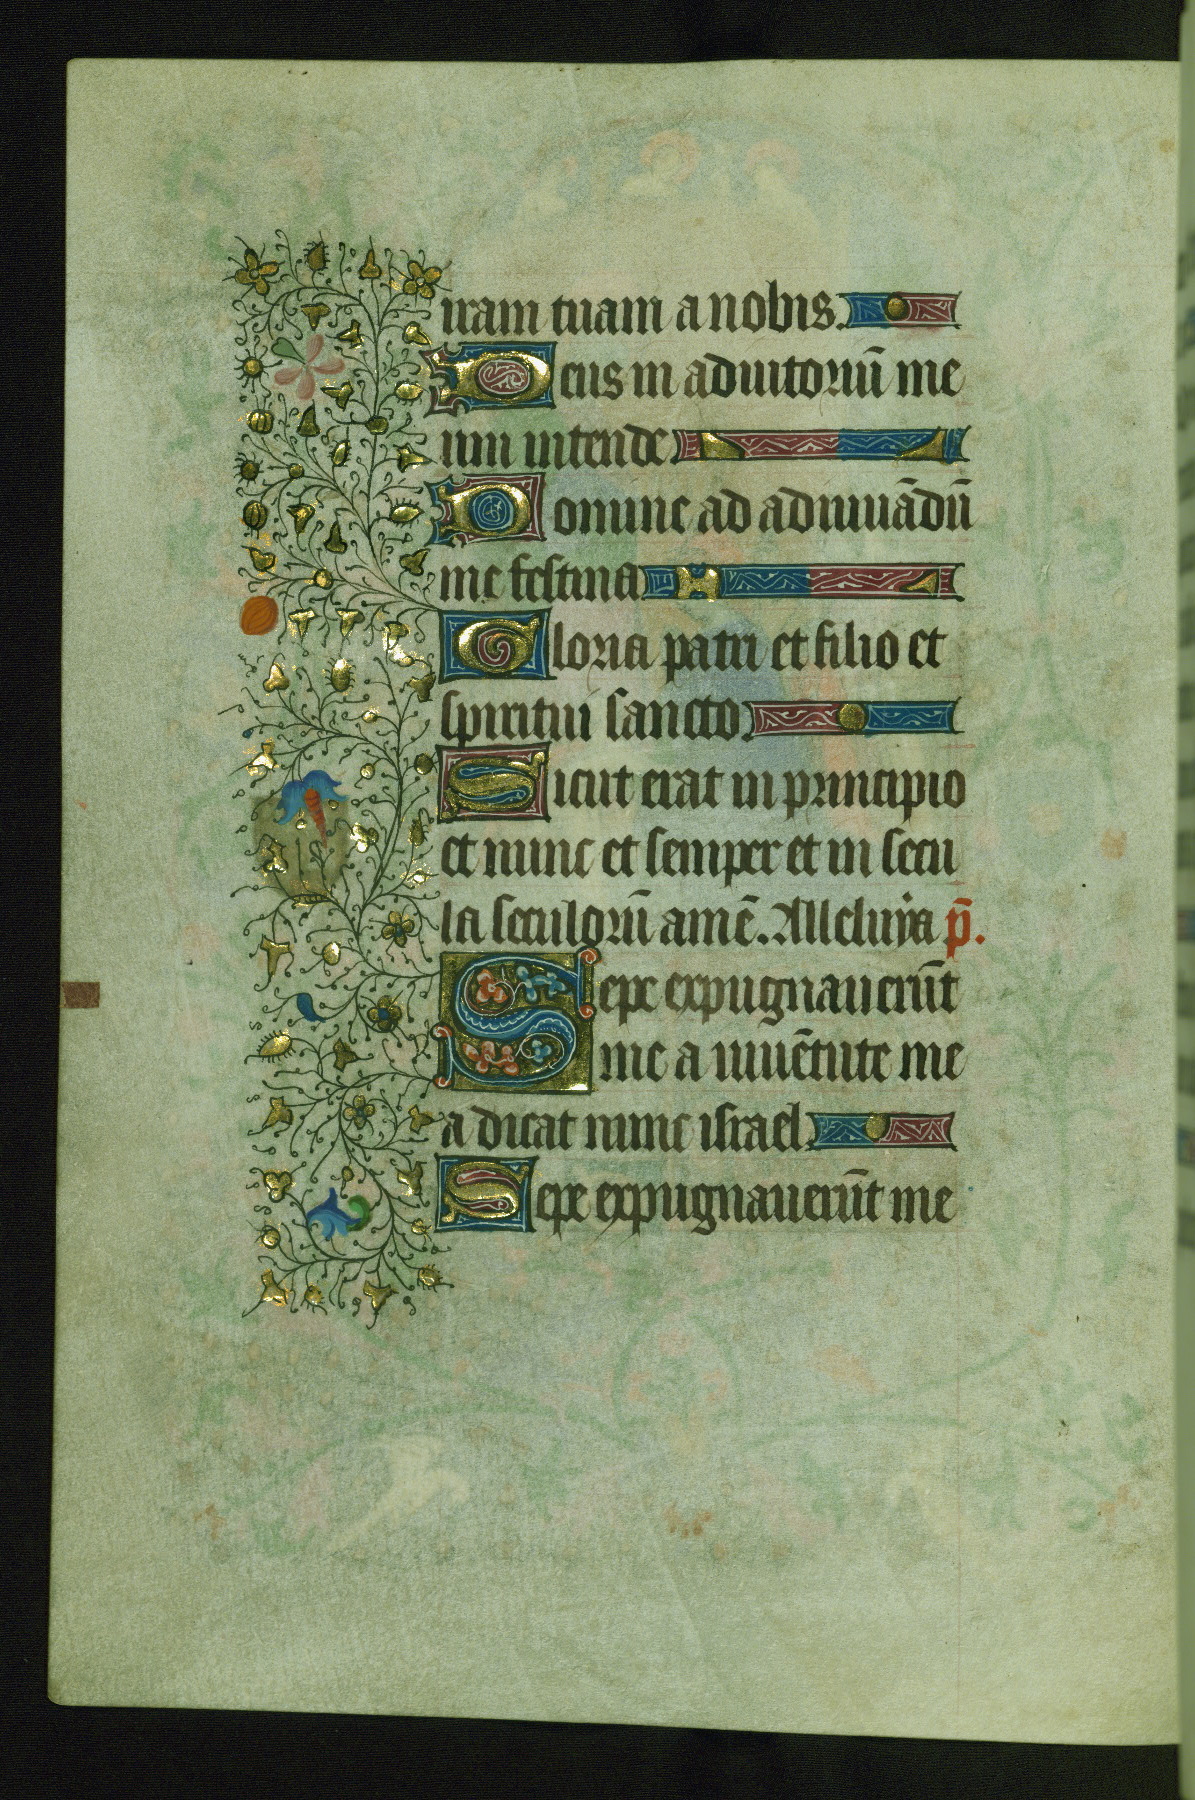 iram tuam a nobis.
Deus in adiutoriū me
um intende
Domine ad adiuuādū
me festina
Gloria patri et filio et
spiritui sancto.
Sicut erat in principio
et nunc et semper et in secu
la seculorū amē. Alleluya p̄.
Sepe expugnauerūt
me a iuuētute me
a dicat nunc israel
Sepe expugnauerūt me